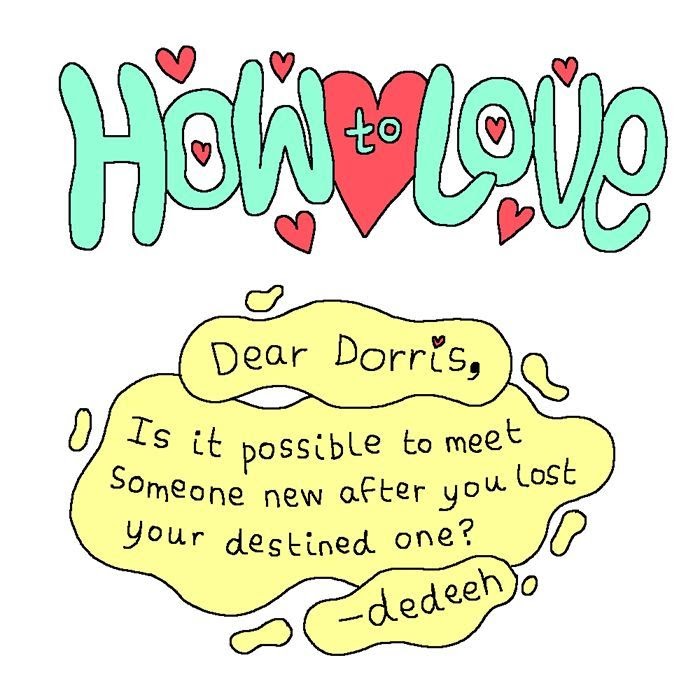 How to Love
Dear Dorris,
Is it possible to meet
someone new after you lost
your destined one?
-dedeeh